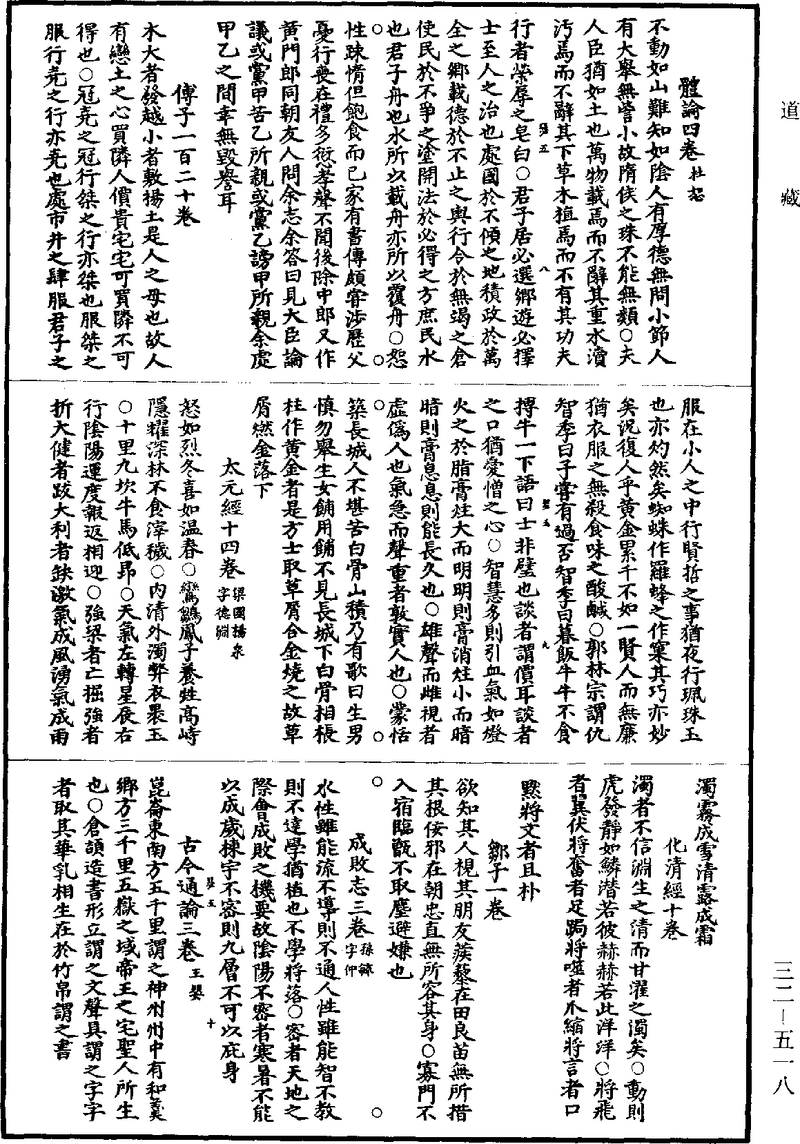 道藏
體論四卷杜恕
不動如山難知如陰人有厚德無問小節人
有大舉無訾小故隋侯之珠不能無纇○夫
人臣猶如土也萬物載焉而不辭其重水瀆
汚焉而不辭其下草木植焉而不有其功夫
行者榮辱之皂白○君子居必選鄉遊必擇
士至人之治也處國於不傾之地積政於萬
全之鄉載德於不止之輿行令於無竭之倉
使民於不爭之塗開法於必得之方庶民水
也君子舟也水所以載舟亦所以覆舟○恕
性踈惰但飽食而已家有書傳頗嘗涉歷父
憂行喪在禮多愆孝聲不聞後除中郎又作
黃門郎同朝友人問余志余答曰見大臣論
議或黨甲苦乙所親或黨乙謗甲所親余處
甲乙之間幸無毀譽耳
傅子一百二十卷
水大者發越小者敷揚土是人之母也故人
有戀土之心買隣人價貴宅宅可買隣不可
得也○冠堯之冠行桀之行亦桀也服桀之
服行堯之行亦堯也處市井之肆服君子之
服在小人之中行賢哲之事猶夜行珮珠玉
也亦灼然矣蜘蛛作羅蜂之作窠其巧亦妙
矣況復人乎黃金累千不如一賢人而無廉
猶衣服之無殺食味之酸鹹○郭林宗謂仇
智季曰子嘗有過否智季曰暮飯牛牛不食
搏牛一下語曰士非璧也談者謂價耳談者
之口猶愛憎之心○智慧多則引血氣如燈
火之於脂膏炷大而明明則膏消炷小而暗
暗則膏息息則能長久也○雄聲而雌視者
虛偽人也氣急而聲重者敦實人也○蒙恬
築長城人不堪苦白骨山積乃有歌曰生男
慎勿舉生女餔用餔不見長城下白骨相棖
柱作黃金者是方士取草屑合金燒之故草
屑燃金落下
太元經十四卷梁國楊泉字德淵
怒如烈冬喜如温春○鸞鷂鳳子養甡高峙
隱耀深林不食滓穢○内清外濁弊衣褁玉
○十里九坎牛馬低昂○天氣左轉星辰右
行陰陽運度報返相迎○強梁者亡掘強者
折大健者跋大利者缺激氣成風湧氣成雨
濁霧成雪清露成霜
化清經十卷
濁者不信淵生之清而甘濯之濁矣○動則
虎發靜如鱗潛若彼赫赫若此洋洋○將飛
者翼伏將奮者足跼將噬者爪縮將言者口
默將文者且朴
鄒子一卷
欲知其人視其朋友蒺蔾在田良苗無所措
其根佞邪在朝忠直無所容其身○寡門不
入宿臨甑不取塵避嫌也
成敗志三卷孫毓字仲
水性雖能流不導則不通人性雖能智不教
則不達學猶植也不學將落○審者天地之
際會成敗之機要故陰陽不審者寒暑不能
以成歲棟宇不審則九層不可以庇身
古今通論三卷王嬰
崑崙東南方五千里謂之神州州中有和羹
鄉方三千里五嶽之域帝王之宅聖人所生
也○倉頡造書形立謂之文聲具謂之字字
者取其華乳相生在於竹帛謂之書
三二—五一八